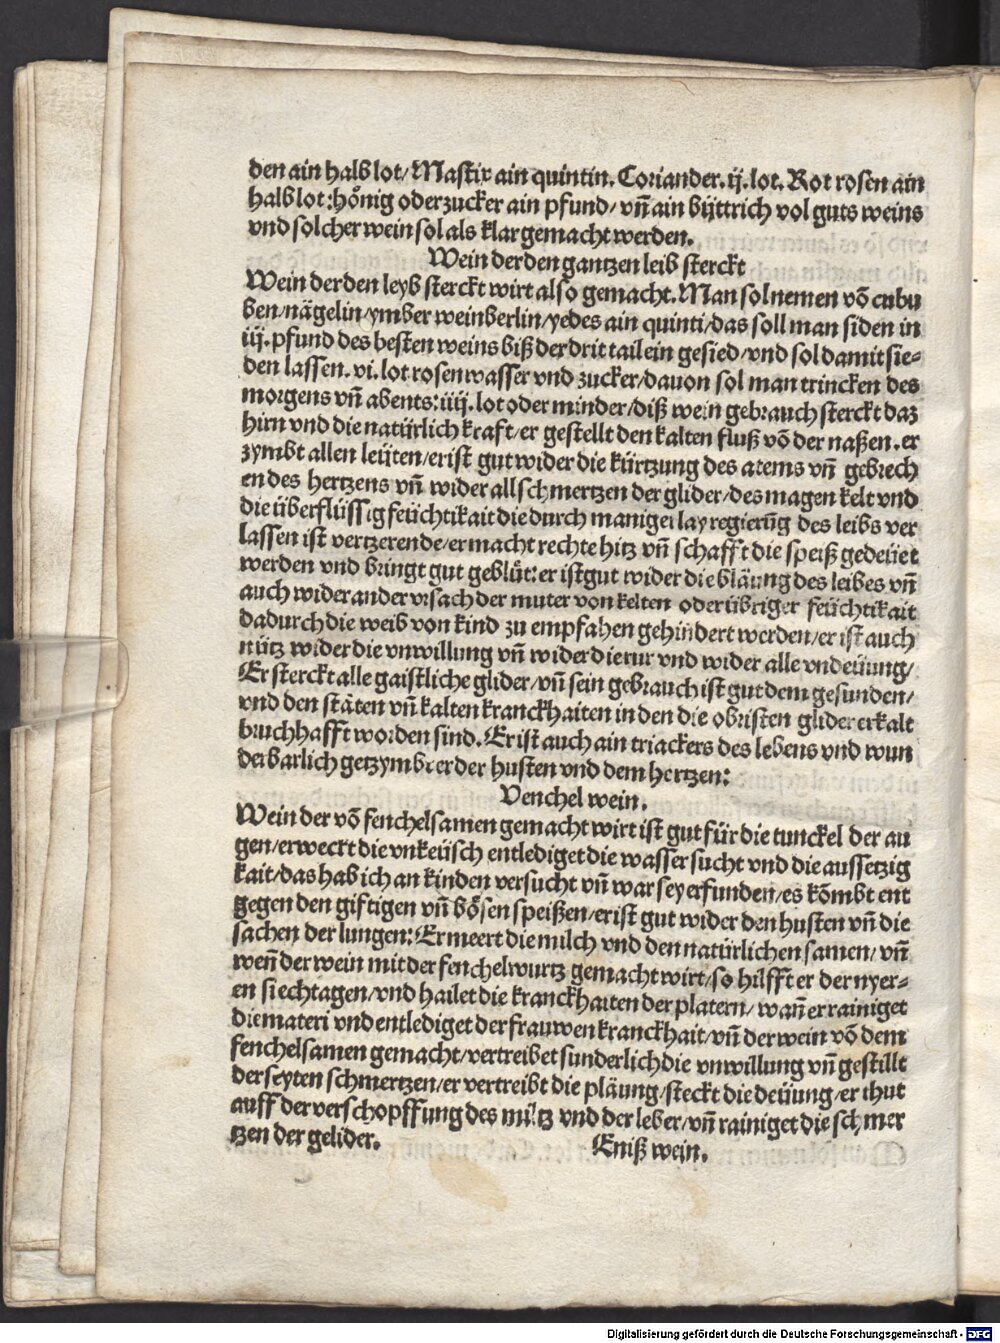 den ain halb lot/ Mastix ain quintin. Coriander. ij. lot. Rot rosen ain
halb lot: hönig oder zucker ain pfund/ vñ ain bijttrich vol guts weins
vnd solcher wein sol als klar gemacht werden.
Wein der den gantzen leib sterckt
Wein der den leyb sterckt wirt also gemacht. Man sol nemen võ cubu
ben/ nägelin/ ymber weinberlin/ yedes ain quinti/ das soll man siden in
iij. pfund des besten weins biß der drit tail ein gesied/ vnd sol damit sie-
den lassen. vi. lot rosen wasser vnd zucker/ dauon sol man trincken des
morgens vñ abents: iiij. lot oder minder/ diß wein gebrauch sterckt daz
hirn vnd die natürlich kraft/ er gestellt den kalten fluß võ der naßen. er
zymbt allen leüten/ er ist gut wider die kürtzung des atems vñ gebrech
en des hertzens vñ wider all schmertzen der glider/ des magen kelt vnd
die überflüssig feüchtikait die durch maniger lay regierũg des leibs ver
lassen ist vertzerende/ er macht rechte hitz vñ schafft die speiß gedeüet
werden vnd bringt gut geblüt: er ist gut wider die bläung des leibes vñ
auch wider ander vrsach der muter von kelten oder übriger feüchtikait
dadurch die weib von kind zu empfahen gehindert werden/ er ist auch
nütz wider die vnwillung vñ wider die rur vnd wider alle vndeüung/
Er sterckt alle gaistliche glider/ vñ sein gebrauch ist gut dem gesunden/
vnd den stäten vñ kalten kranckhaiten in den die obristen glider erkalt
bruchhafft worden sind. Er ist auch ain triackers des lebens vnd wun
derbarlich getzymbt er der husten vnd dem hertzen:
Venchel wein.
Wein der võ fenchelsamen gemacht wirt ist gut für die tunckel der au
gen/ erweckt die vnkeüsch entlediget die wasser sucht vnd die aussetzig
kait/ das hab ich an kinden versucht vñ war sey erfunden/ es kõmbt ent
gegen den giftigen vñ bösen speißen/ er ist gut wider den husten vñ die
sachen der lungen: Er meert die milch vnd den natürlichen samen/ vñ
weñ der wein mit der fenchelwurtz gemacht wirt/ so hilfft er der nyer-
en siechtagen/ vnd hailet die kranckhaiten der platern/ wañ er rainiget
die materi vnd entlediget der frauwen kranckhait/ vñ der wein võ dem
fenchelsamen gemacht/ vertreibet sunderlich die vnwillung vñ gestillt
der seyten schmertzen/ er vertreibt die pläung/ steckt die deüung/ er thut
auff der verschopffung des miltz vnd der leber/ vñ rainiget die schmer
tzen der gelider. Eniß wein.
Digitalisierung gefördert durch die Deutsche Forschungsgemeinschaft - DFG